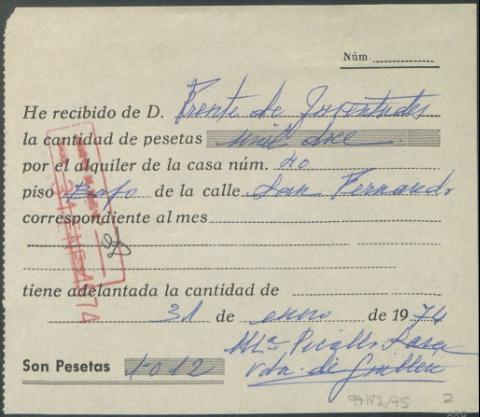 Núm
He recibido de D. Frente de Juventudes
la cantidad de pesetas mil doce.
por el alquiler de la casa núm. 40
piso Bajo de la calle San Fernando
correspondiente al mes
tiene adelantada la cantidad de
31 de enero de 1974
Mª
Son Pesetas 1012 Vda. de Guillen
2